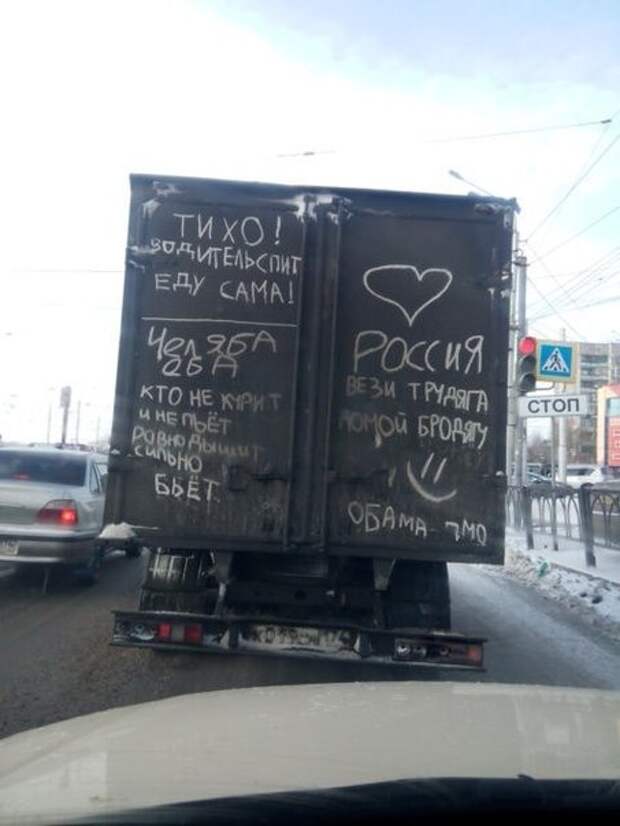 ТИХО!
ВОДИТЕЛЬ СПИТ
ЕДУ САМА!
ЧЕЛЯБА
КТО НЕ КУРИТ
И НЕ ПЬЁТ
РОВНО ДЫШИТ
СИЛЬНО
БЬЁТ
РОССИЯ
ВЕЗИ ТРУДЯГА
ДОМОЙ БРОДЯГУ
ОБАМА-ЧМО
СТОП